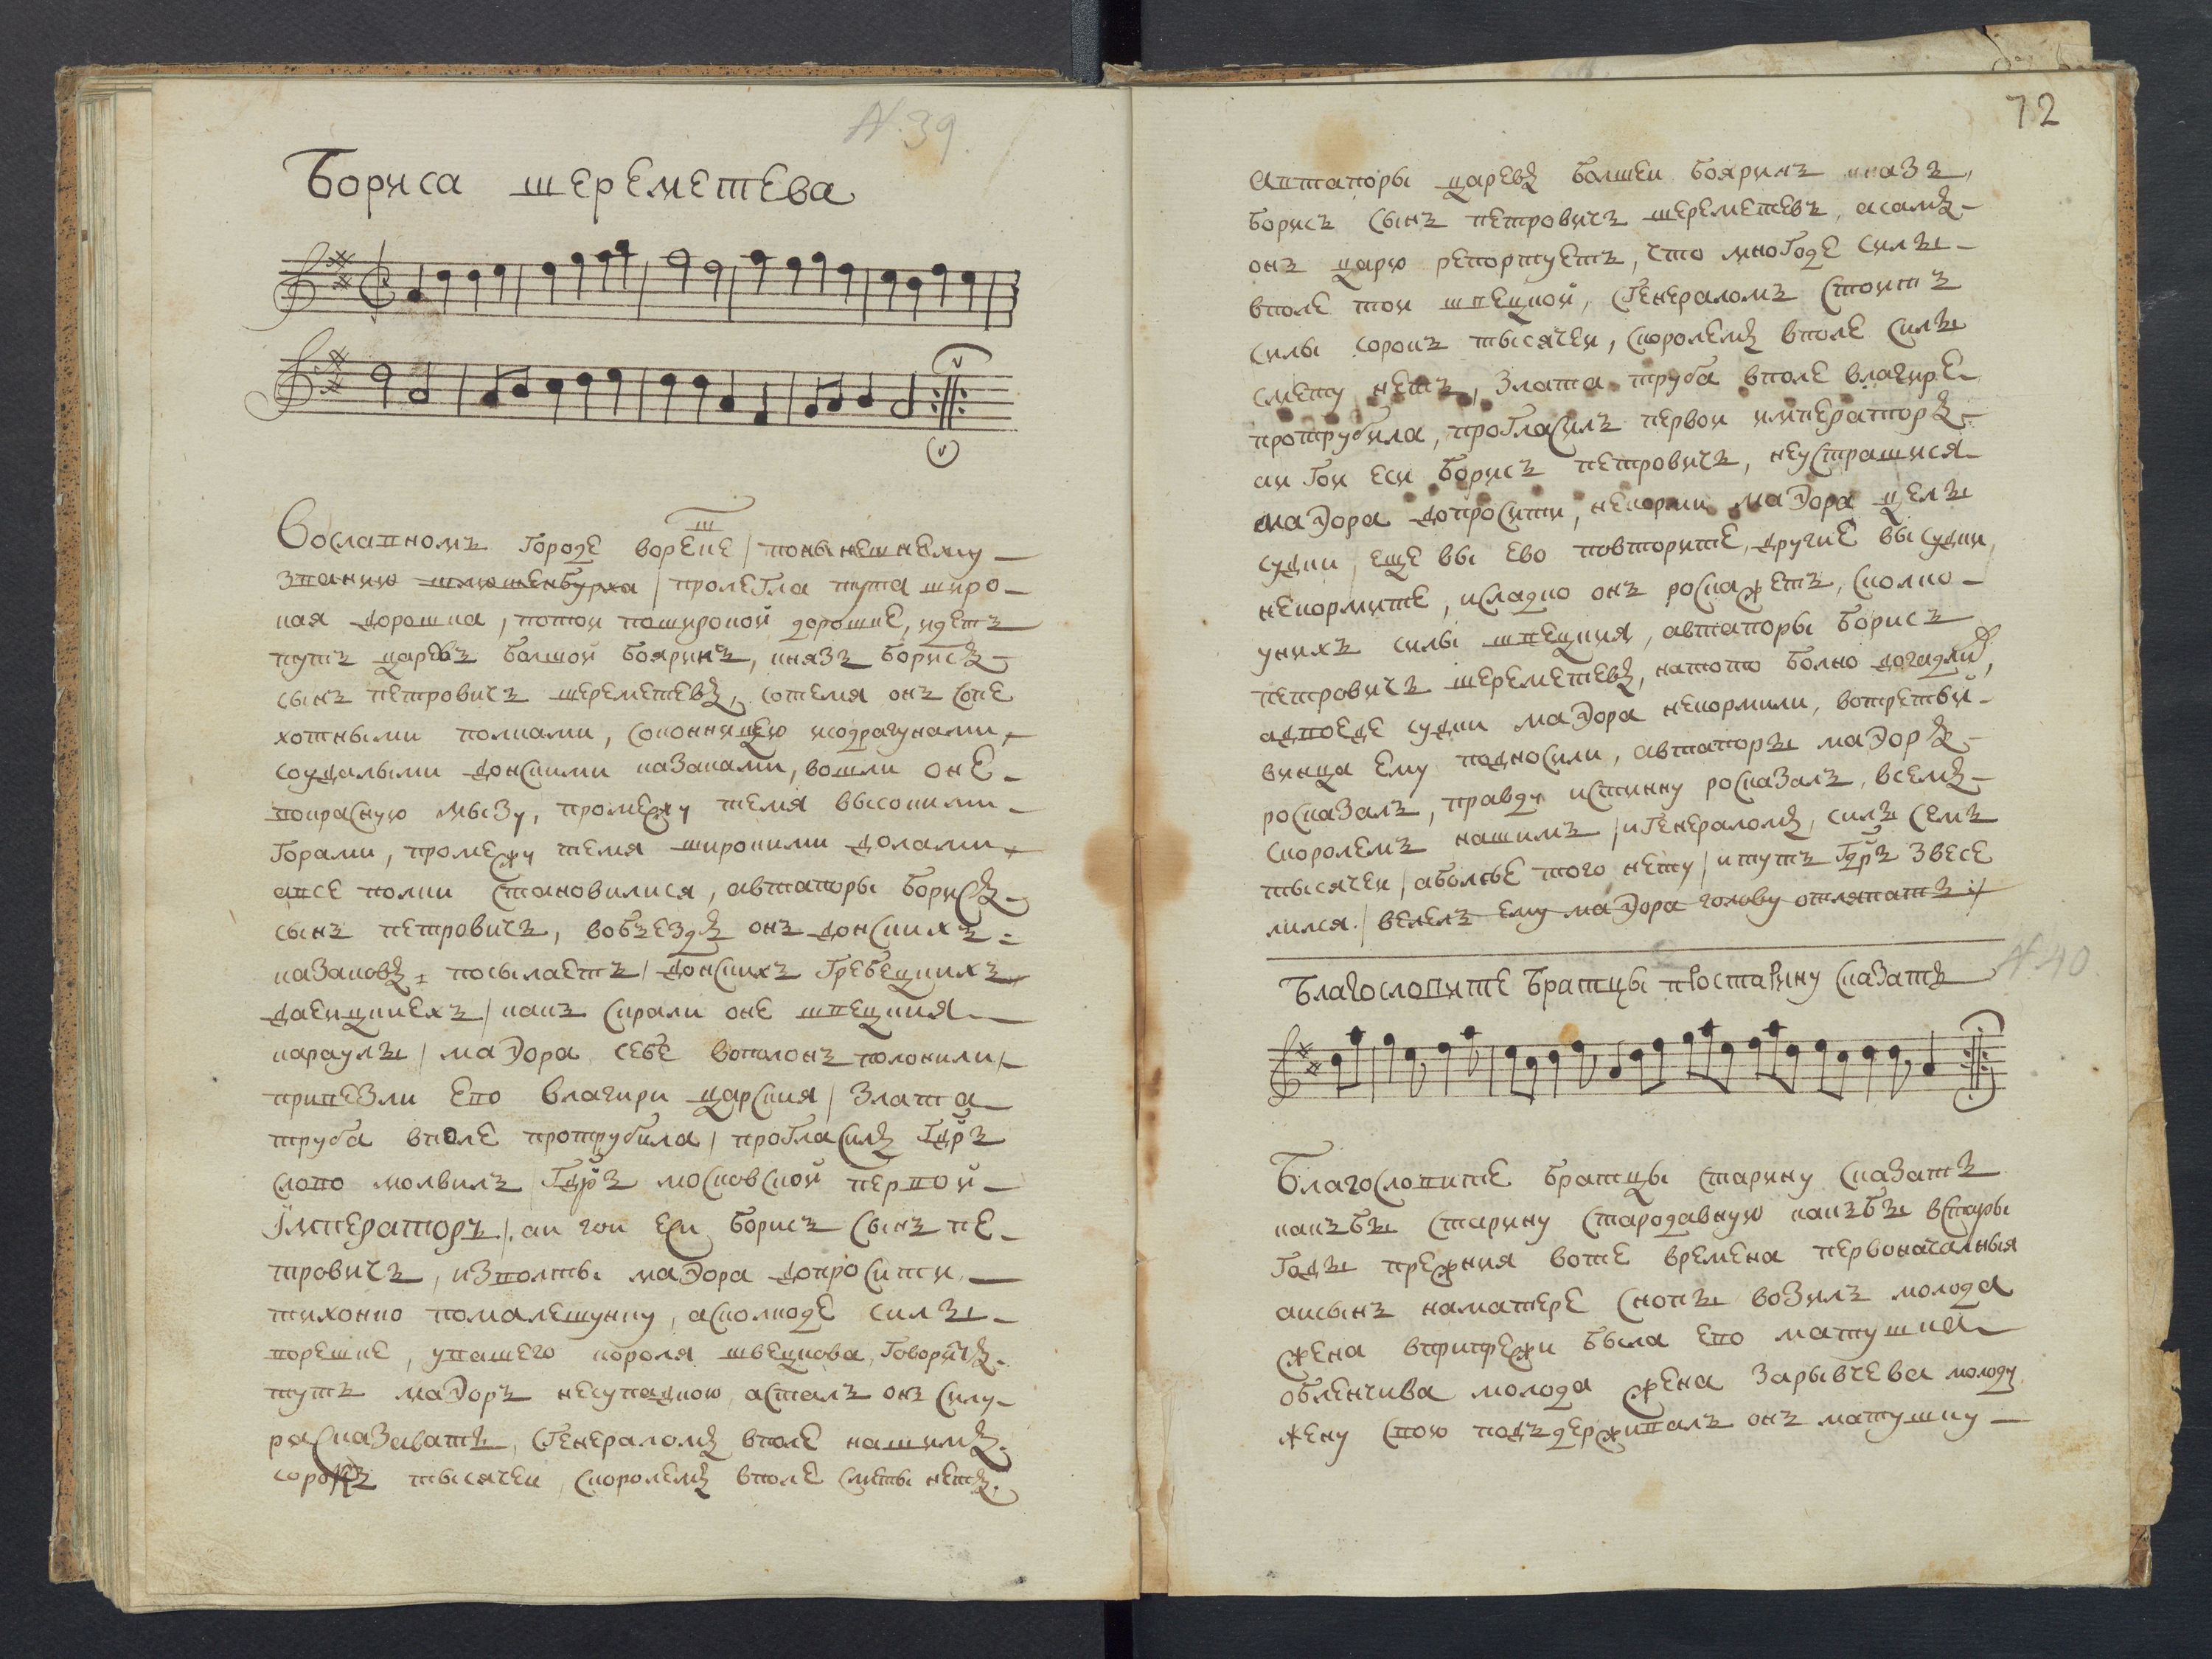 N. 39.
Бориса шереметева
Вославномъ городе вореше / понынешнему
званию шлюшенбурха / пролегла пута широ-
кая дорошка, потои поширокой дорошке, идетъ
путъ царевъ болшой бояринъ, князъ борисъ
сынъ петровичъ шереметевъ, сотемя онъ сопе
хотными полками, соконницею исодрагунами,
соудалыми донскими казаками, вошли оне
покрасную мызу, промежу темя высокими
горами, промежу темя широкими долами,
авсе полки становилися, автапоры борисъ
сынъ петровичъ, вобъездъ онъ донскихъ
казаковъ посылаетъ / донскихъ гребецкихъ
даеицкиехъ / какъ скрали оне швецкия
караулы / маэора себе вополонъ полонили,
привезли ево влагири царския / злата
труба вполе протрубила / прогласилъ гдрь
слово молвилъ / гдрь московской первой
Император / аи гои еси борисъ сынъ пе
тровичъ, изволты маэора допросити
тихонко помалешунку, асколкоде силы
вореше, увашего короля швецкова, говоритъ
тутъ маэоръ несупадкою, асталъ онъ силу
расказавать, сгенераломъ вполе нашимъ
сорокъ тысячеи, скоролемъ вполе сметы нетъ.
72
Автапоры царевъ болшеи бояринъ кназъ,
борисъ сынъ петровичъ шереметевъ, асамъ
онъ царю репортуетъ, что многоде силы
вполе тои швецкой, сгенераломъ стоитъ
силы сорокъ тысячеи, скоролемъ вполе силы
смету нетъ, злата труба вполе влагире
протрубила, прогласилъ первои императоръ
аи гои еси борисъ петровичъ, неустрашися
маэора допросити, некорми маэора целы
судки, еще вы ево повторите, другие вы судки
некормите, исладко онъ роскажетъ, сколко
унихъ силы швецкия, автапоры борисъ
петровичъ шереметевъ, натото болно догадли,
адвоеде судки маэора некормили, вотретьи
винца ему подносили, автапоры маэоръ
росказалъ, правду истинну росказалъ, всемъ
скоролемъ нашимъ / игенераломъ, силы семъ
тысячеи / аболье того нету / итутъ гдрь звесе
лился. / велелъ ему маэора голову отляпать :/
N. 40.
Благословите братцы простарину сказать
Благословите братцы старину сказать
какъбы старину стародавную какъбы встары
годы прежния воте времена первоначалныя
аисынъ наматере снопы возилъ молода
жена впрпрежи была ево матушка
обленчива молода жена зарывчева молоду
жену свою подъдерживалъ онъ матушку